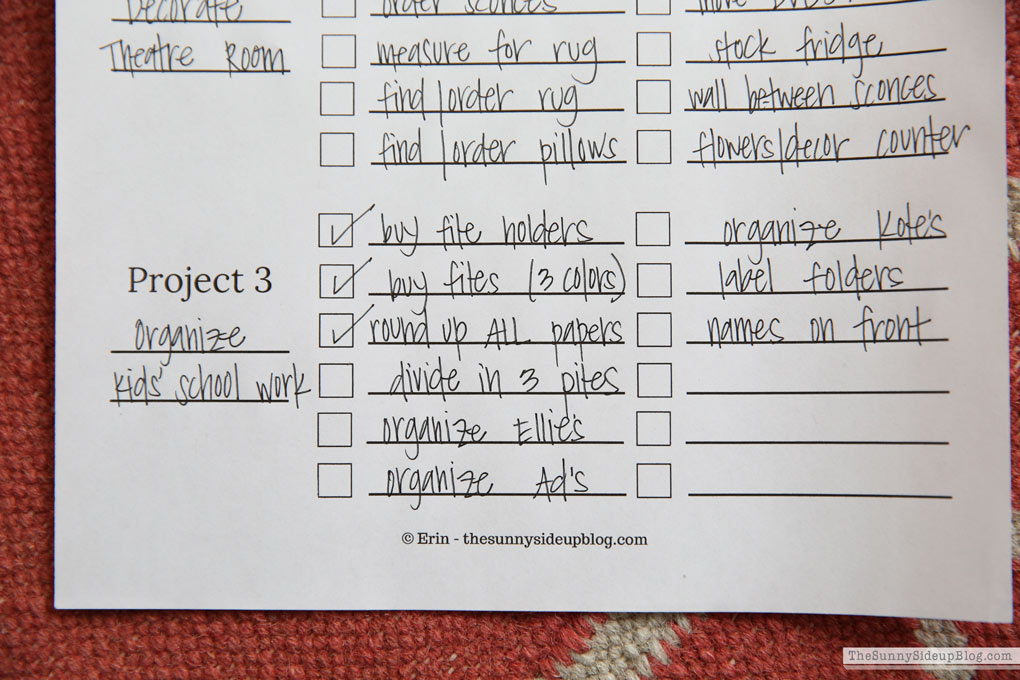 Decorate
Theatre Room
order sconces
measure for rug
find/order rug
find/order pillows
move
stock fridge
wall between sconces
flowers/decor counter
Project 3
organize
kids' school work
buy file holders
buy files (3 colors)
round up ALL papers
divide in 3 piles
organize Ellie's
organize Ad's
organize Kole's
label folders
names on front
© Erin - thesunnysideupblog.com
TheSunnySideupBlog.com